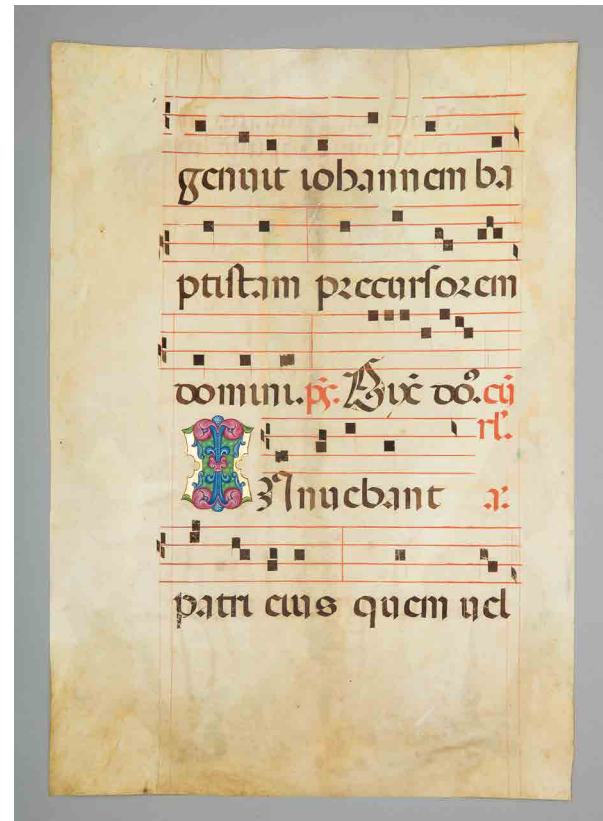 genuit iohannem ba
ptistam precursorem
domini. ps̄. Dix̄ do⁹. cū
rl'.
INnuebant a.
patri eius quem uel